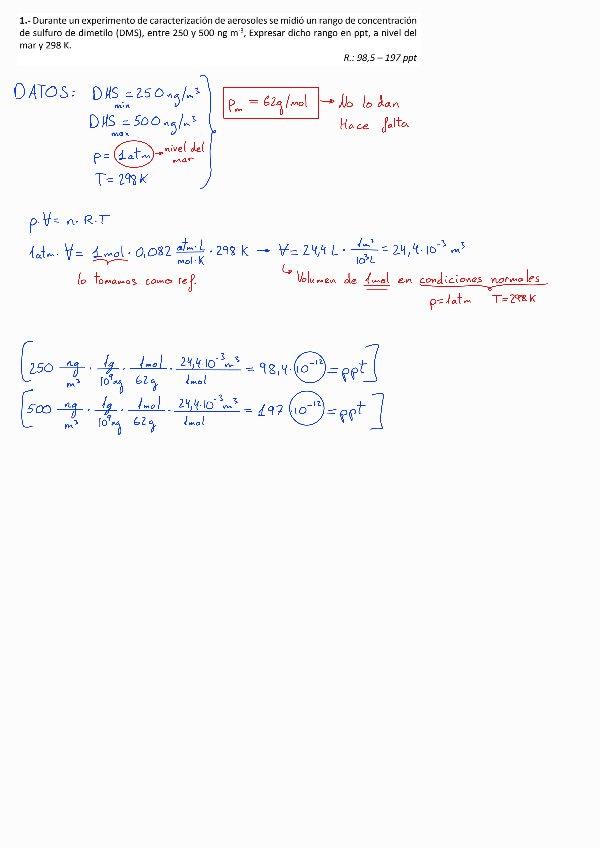 1.- Durante un experimento de caracterización de aerosoles se midió un rango de concentración
de sulfuro de dimetilo (DMS), entre 250 y 500 ng m⁻³, Expresar dicho rango en ppt, a nivel del
mar y 298 K.
R.: 98,5 – 197 ppt
DATOS: DMS min = 250 ng/m³
DMS max = 500 ng/m³
p = 1atm → nivel del mar
T = 298 K
Pm = 62g/mol → No lo dan
Hace falta
p·V = n·R·T
1atm·V = 1mol · 0,082 atm·L/mol·K · 298 K → V = 24,4 L · 1m³/10³L = 24,4·10⁻³ m³
lo tomamos como ref.
↳ Volumen de 1mol en condiciones normales
p=1atm T=298K
[250 ng/m³ · 1g/10⁹ng · 1mol/62g · 24,4·10⁻³m³/1mol = 98,4·10⁻¹² = ppt]
[500 ng/m³ · 1g/10⁹ng · 1mol/62g · 24,4·10⁻³m³/1mol = 197·10⁻¹² = ppt]